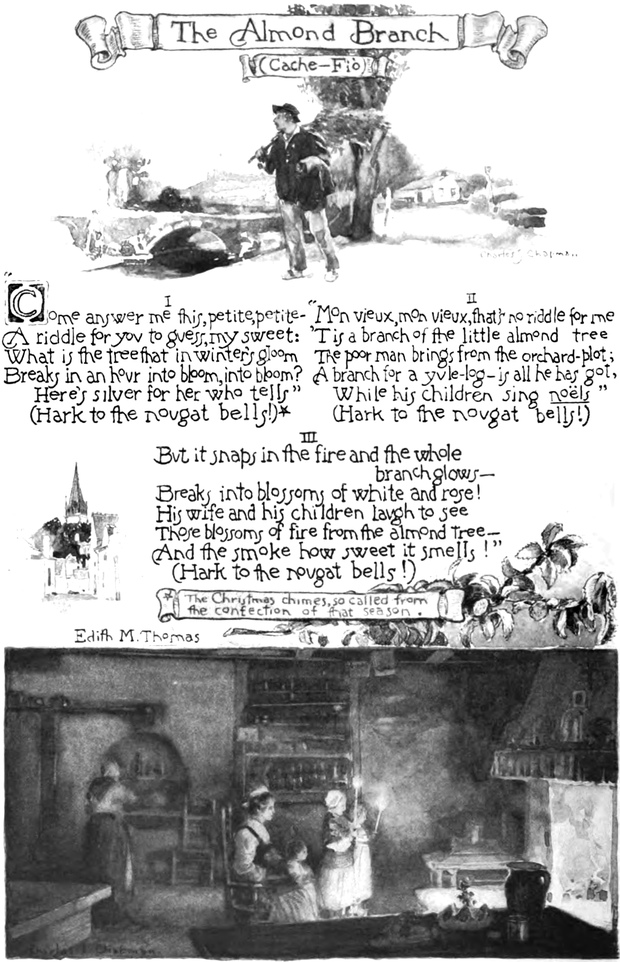 The Almond Branch
(Cache-Fiò)
Charles S. Chapman
I
"Come answer me this, petite, petite—
A riddle for you to guess, my sweet:
What is the tree that in winter's gloom
Breaks in an hour into bloom, into bloom?
Here's silver for her who tells"
(Hark to the nougat bells!)*
II
"Mon vieux, mon vieux, that's no riddle for me
'Tis a branch of the little almond tree
The poor man brings from the orchard-plot;
A branch for a yule-log—is all he has got,
While his children sing noëls"
(Hark to the nougat bells!)
III
But it snaps in the fire and the whole
branch glows—
Breaks into blossoms of white and rose!
His wife and his children laugh to see
Those blossoms of fire from the almond tree—
And the smoke how sweet it smells!"
(Hark to the nougat bells!)
* The Christmas chimes, so called from
the confection of that season.
Edith M. Thomas
Charles S. Chapman